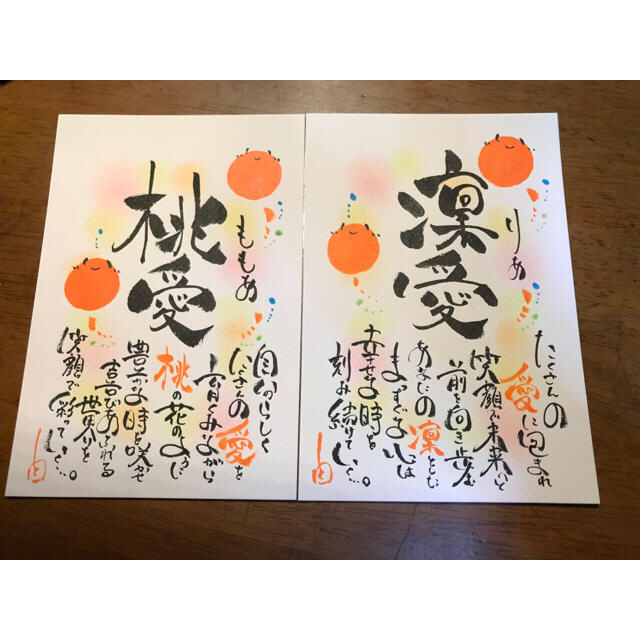 桃愛
ももあ
自分らしく
たくさんの愛を
育くみながら
桃の花のように
豊かな時を咲かせ
喜びあふれる
世界を
笑顔で彩っていく…。
凛愛
りあ
たくさんの
愛に包まれ
笑顔で未来へと
前を向き歩む
あなたの凛とした
まっすぐな心は
幸せな時を
刻み続けていく…。